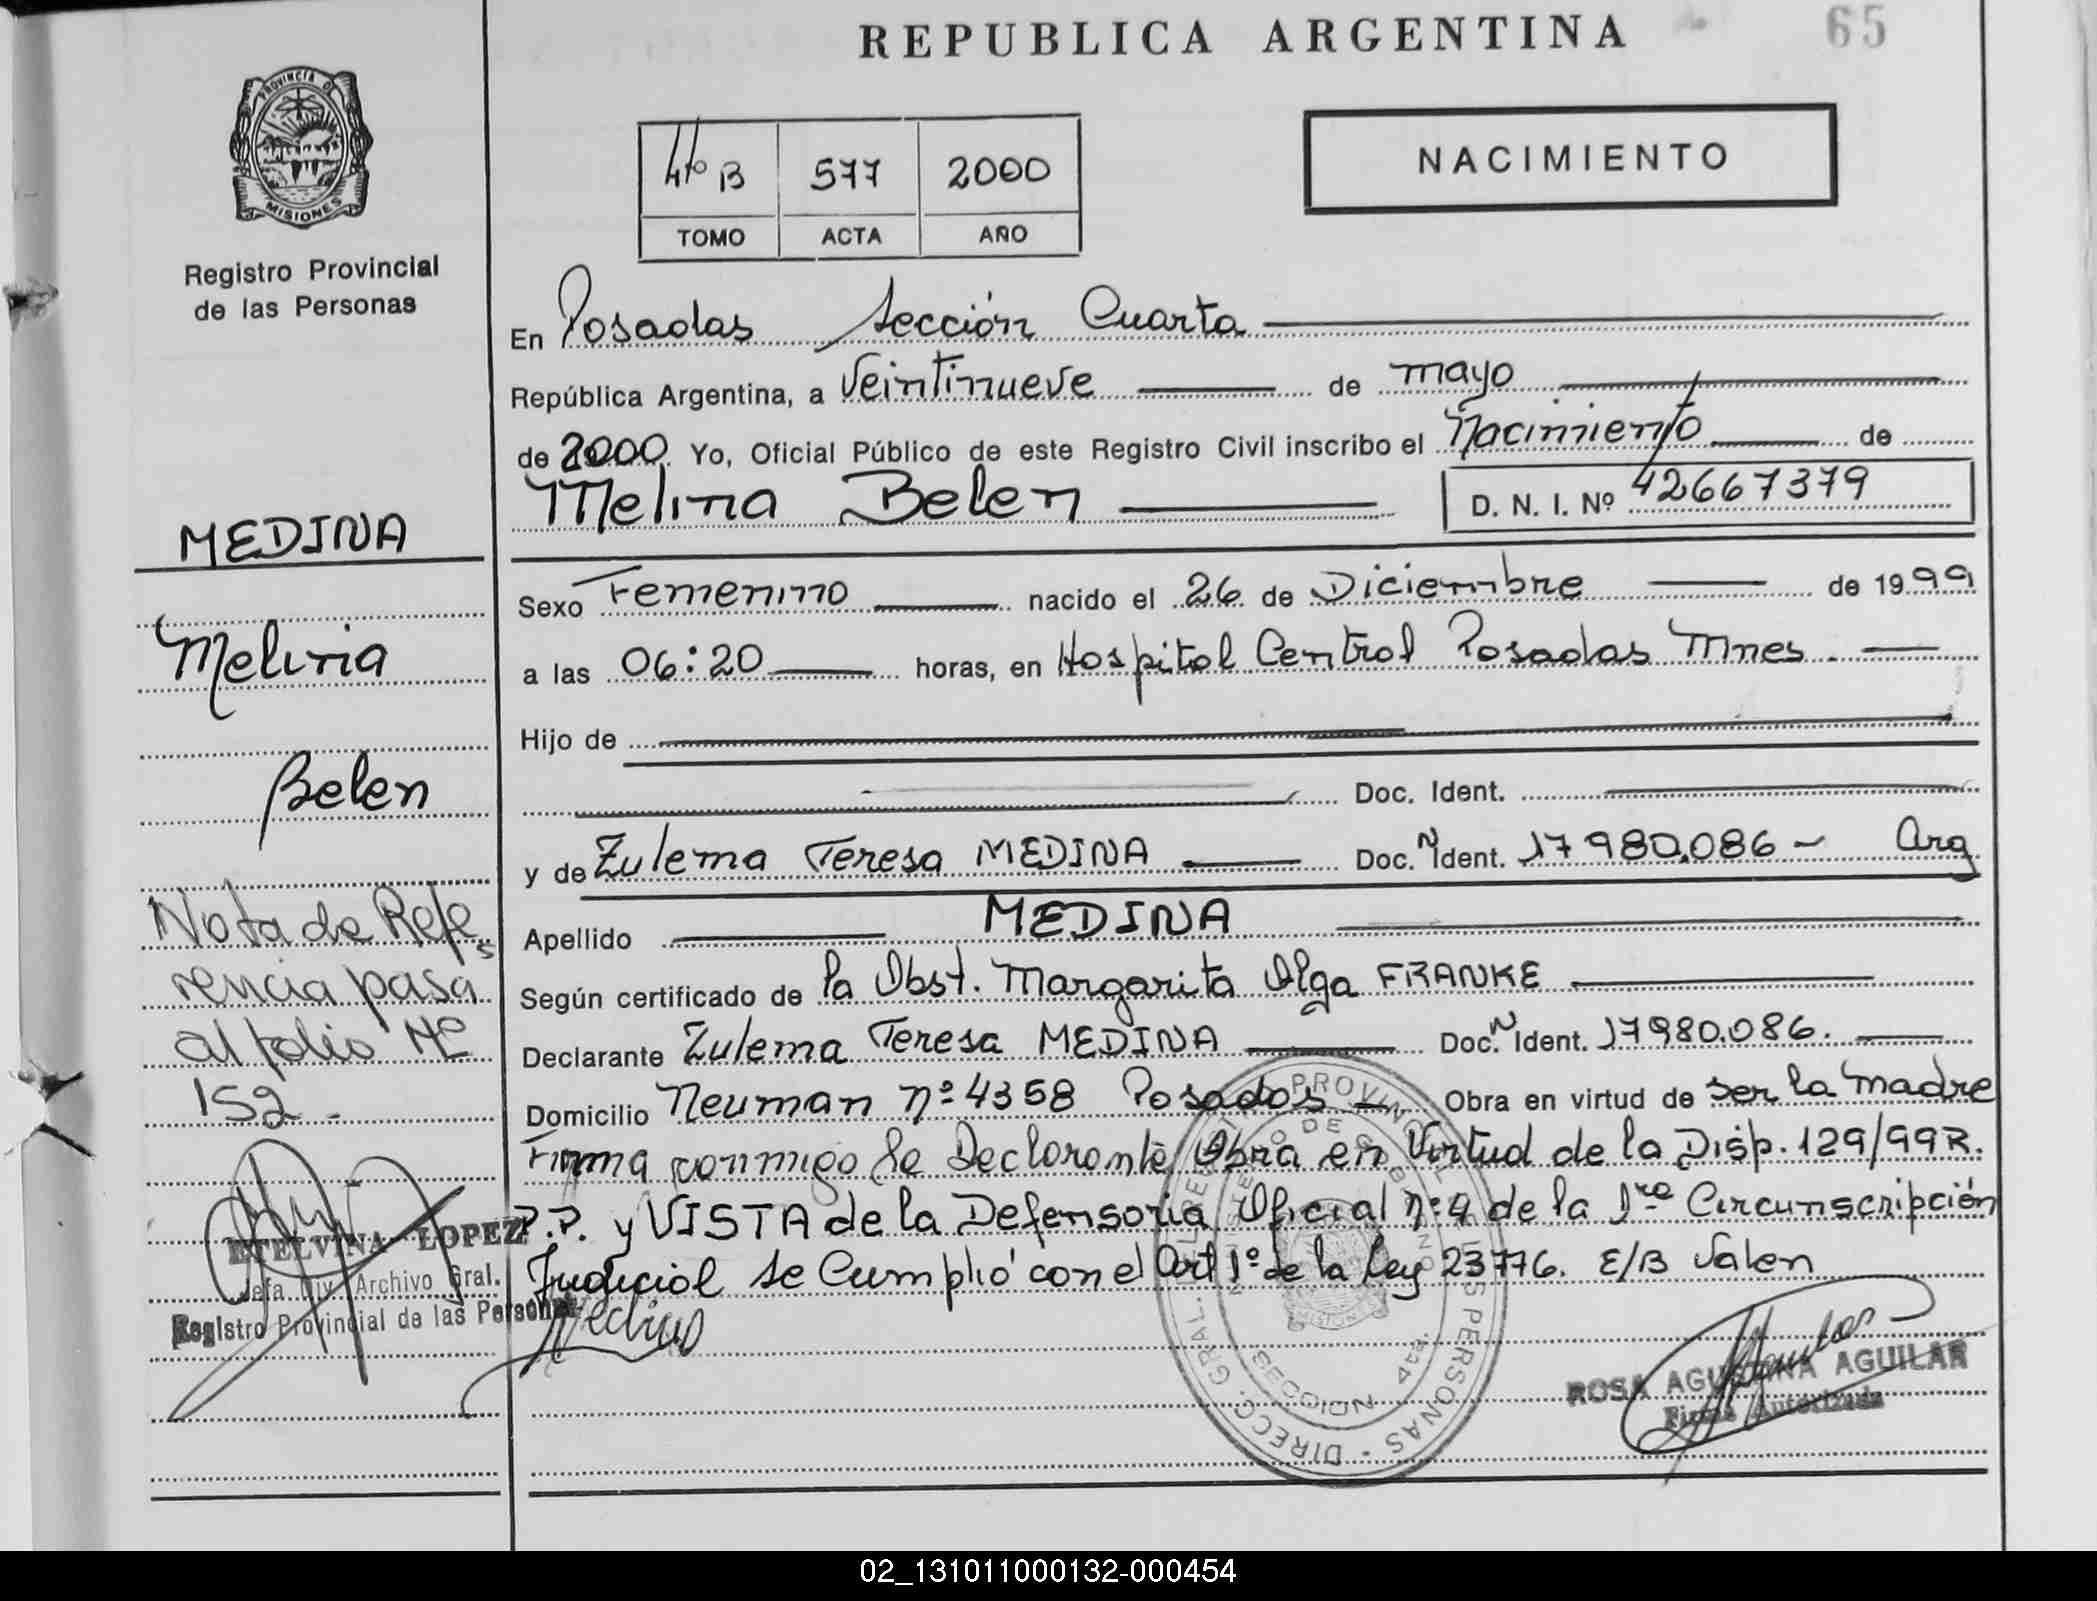 REPUBLICA ARGENTINA
65
PROVINCIA DE
MISIONES
Registro Provincial
de las Personas
4to B 577 2000
TOMO ACTA AÑO
NACIMIENTO
En Posadas Sección Cuarta
República Argentina, a Veintinueve de mayo
de 2000 Yo, Oficial Público de este Registro Civil inscribo el Nacimiento de
Melina Belen D. N. I. Nº 42667379
Sexo Femenino nacido el 26 de Diciembre de 1999
a las 06:20 horas, en Hospital Central Posadas Mnes.
Hijo de
Doc. Ident.
y de Zulema Teresa MEDINA Doc. N Ident. 17980.086 - Arg
Apellido MEDINA
Según certificado de la Obst. Margarita Olga FRANKE
Declarante Zulema Teresa MEDINA Doc. N Ident. 17980.086.
Domicilio Neuman nº 4358 Posadas Obra en virtud de ser la madre
Firma conmigo la Declarante Obra en Virtud de la Disp. 129/99 R.
P.P. y VISTA de la Defensoria Oficial nº 4 de la 1ra Circunscripción
Judicial se Cumplió con el Art 1º de la Ley 23776. E/B Valen
Medina
MEDINA
Melina
Belen
Nota de Refe
rencia pasa
al folio Nº
152-
ETELVINA LOPEZ
Jefa Div. Archivo Gral.
Registro Provincial de las Personas
DIRECC. GRAL. DEL REGIST. PROVINCIAL PERSONAS
SECCION 4ta.
ROSA AGUSTINA AGUILAR
Firma Autorizada
02_131011000132-000454